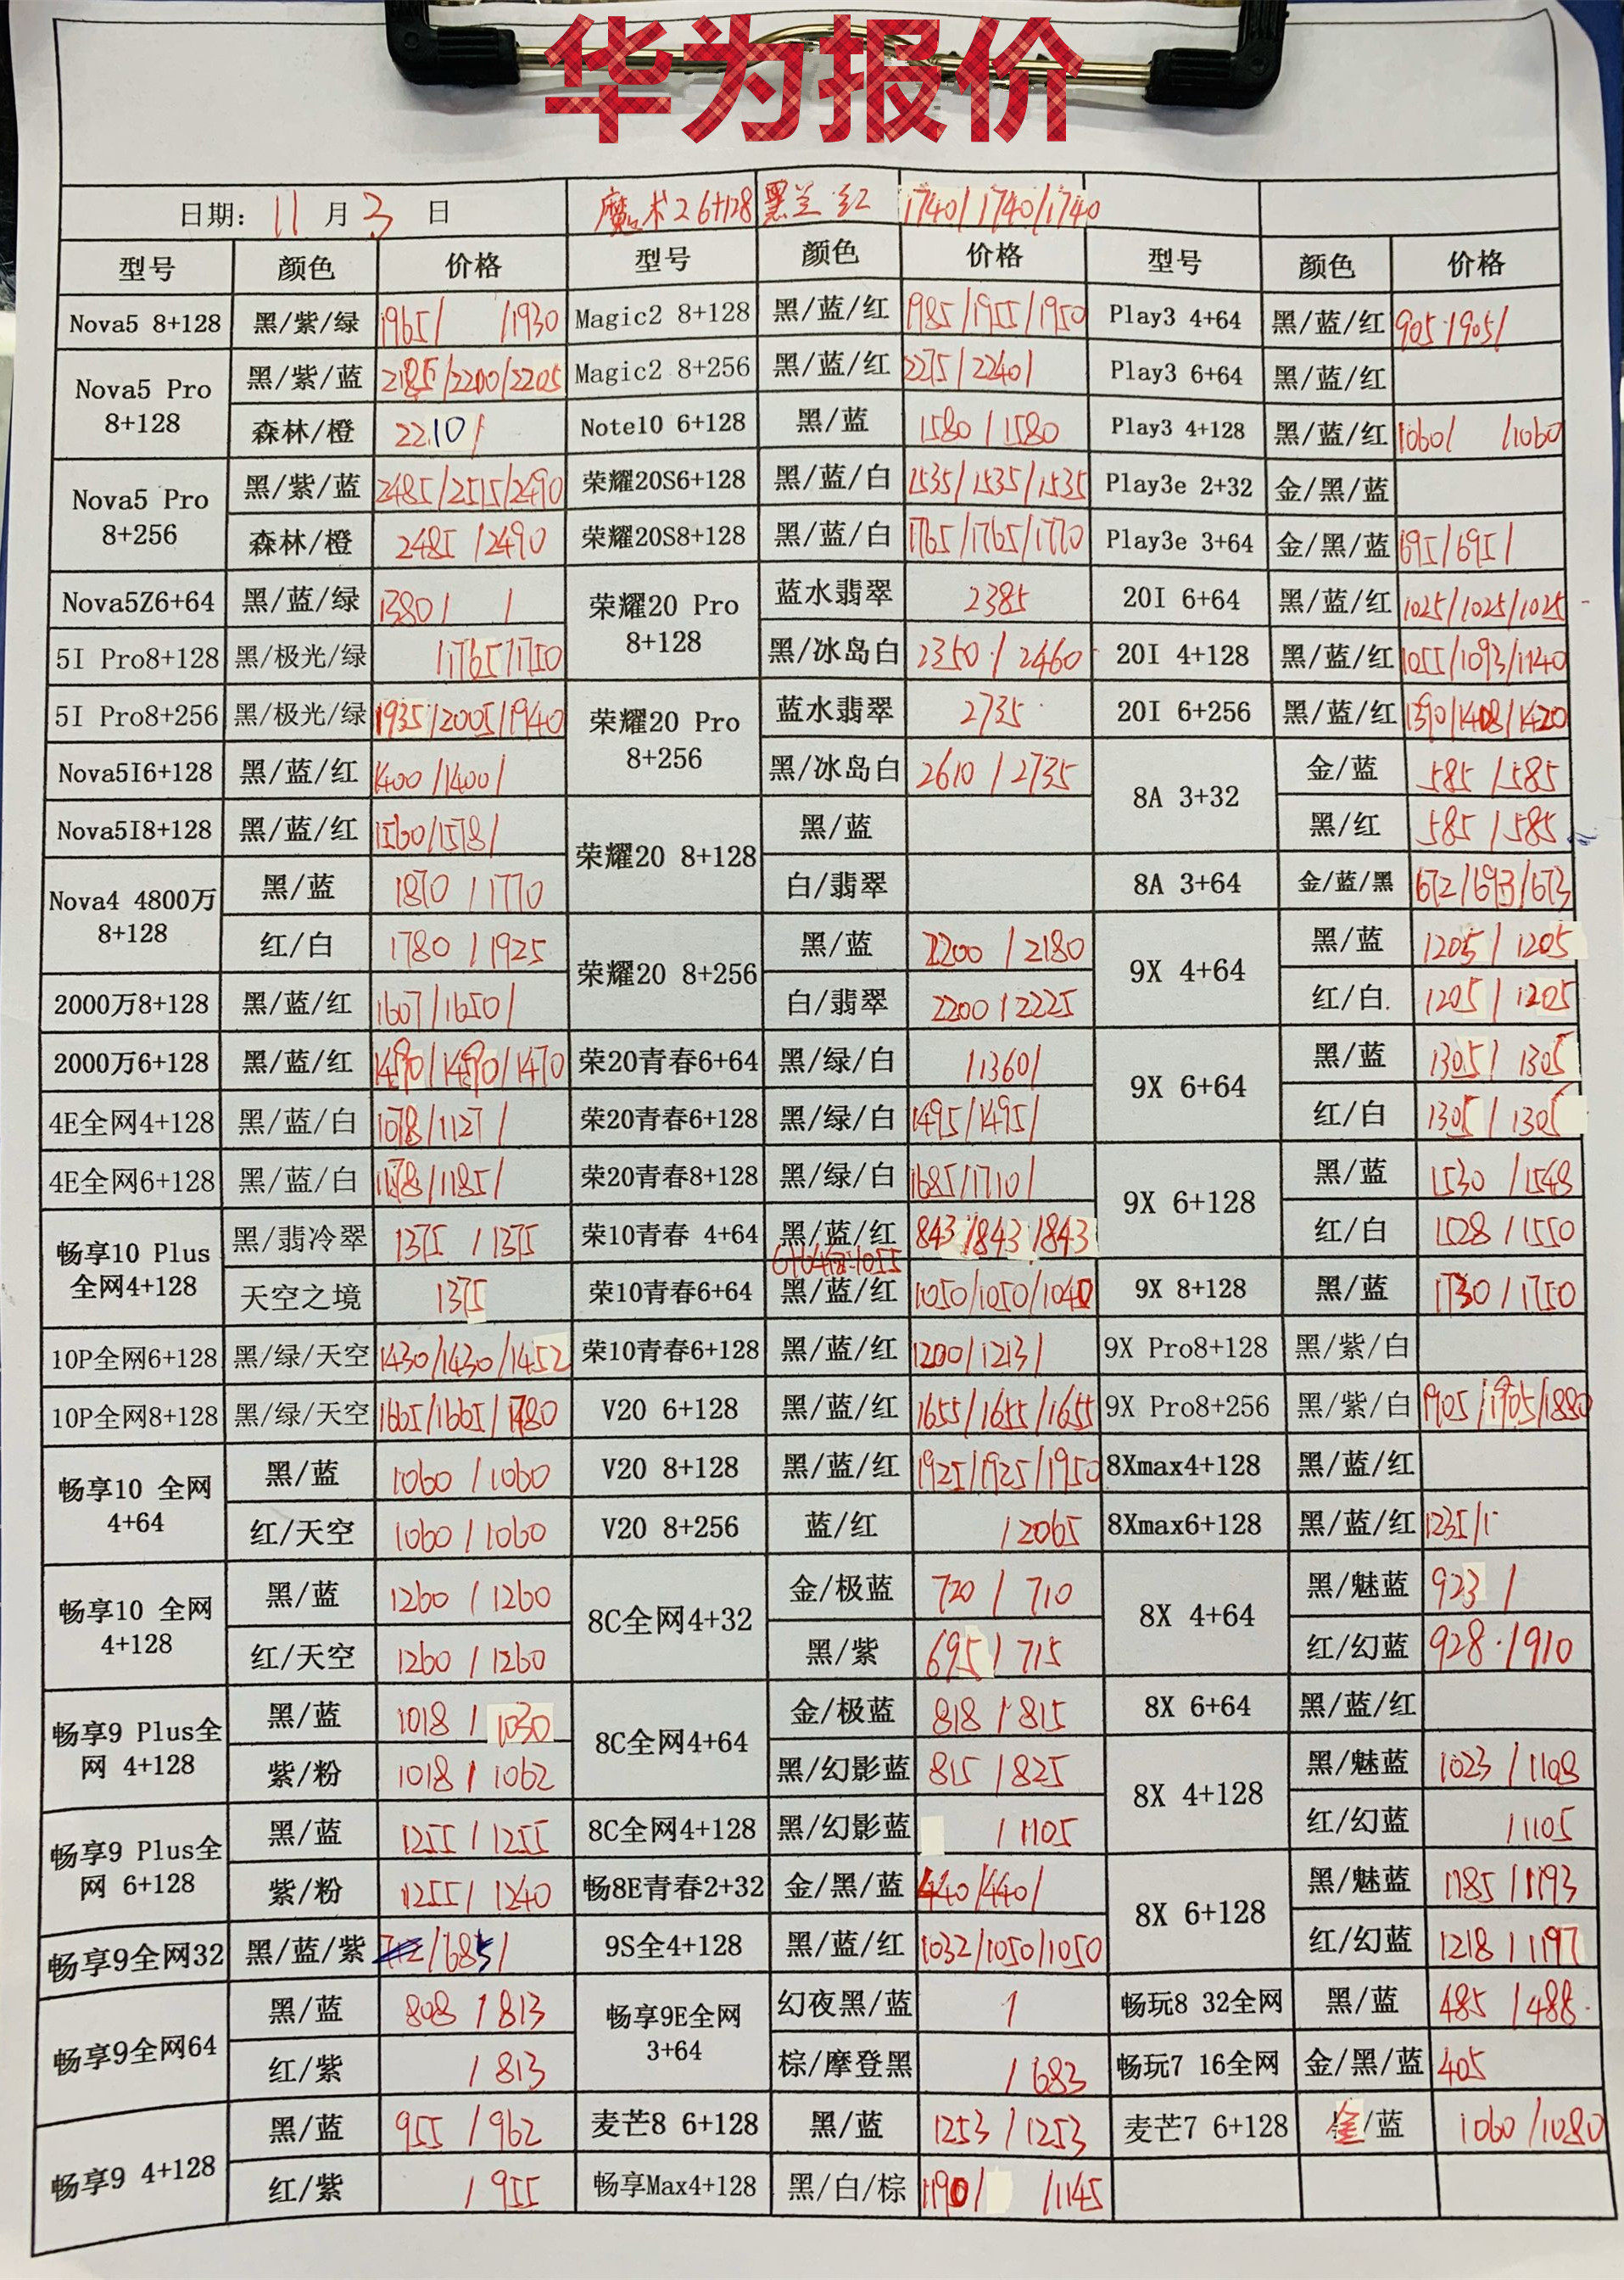 华为报价
日期: 11 月 3 日 魔术2 6+128 黑兰红 1740/1740/1740
型号 颜色 价格 型号 颜色 价格 型号 颜色 价格
Nova5 8+128 黑/紫/绿 1965/ /1930 Magic2 8+128 黑/蓝/红 1985/1955/1950 Play3 4+64 黑/蓝/红 905/905/
Nova5 Pro 8+128 黑/紫/蓝 2185/2200/2205 Magic2 8+256 黑/蓝/红 2275/2240/ Play3 6+64 黑/蓝/红
森林/橙 2210/ Note10 6+128 黑/蓝 1580/1580 Play3 4+128 黑/蓝/红 1060/ /1060
Nova5 Pro 8+256 黑/紫/蓝 2485/2515/2490 荣耀20S6+128 黑/蓝/白 1535/1535/1535 Play3e 2+32 金/黑/蓝
森林/橙 2485/2490 荣耀20S8+128 黑/蓝/白 1765/1765/1770 Play3e 3+64 金/黑/蓝 695/695/
Nova5Z6+64 黑/蓝/绿 1380/ / 荣耀20 Pro 8+128 蓝水翡翠 2385 20I 6+64 黑/蓝/红 1025/1025/1025
5I Pro8+128 黑/极光/绿 /1765/1750 黑/冰岛白 2350/2460 20I 4+128 黑/蓝/红 1055/1093/1140
5I Pro8+256 黑/极光/绿 1935/2005/1940 荣耀20 Pro 8+256 蓝水翡翠 2735 20I 6+256 黑/蓝/红 1390/1408/1420
Nova5I6+128 黑/蓝/红 1400/1400/ 黑/冰岛白 2610/2735 8A 3+32 金/蓝 585/585
Nova5I8+128 黑/蓝/红 1560/1578/ 荣耀20 8+128 黑/蓝 黑/红 585/585
Nova4 4800万 8+128 黑/蓝 1870/1770 白/翡翠 8A 3+64 金/蓝/黑 672/693/673
红/白 1780/1925 荣耀20 8+256 黑/蓝 2200/2180 9X 4+64 黑/蓝 1205/1205
2000万8+128 黑/蓝/红 1607/1650/ 白/翡翠 2200/2225 红/白 1205/1205
2000万6+128 黑/蓝/红 1490/1490/1470 荣20青春6+64 黑/绿/白 /1360/ 9X 6+64 黑/蓝 1305/1305
4E全网4+128 黑/蓝/白 1078/1127/ 荣20青春6+128 黑/绿/白 1495/1495/ 红/白 1305/1305
4E全网6+128 黑/蓝/白 1178/1185/ 荣20青春8+128 黑/绿/白 1685/1710/ 9X 6+128 黑/蓝 1530/1548
畅享10 Plus 全网4+128 黑/翡冷翠 1375/1375 荣10青春 4+64 黑/蓝/红 843/843/843 红/白 1528/1550
天空之境 1375 荣10青春6+64 黑/蓝/红 1050/1050/1040 9X 8+128 黑/蓝 1730/1750
10P全网6+128 黑/绿/天空 1430/1430/1452 荣10青春6+128 黑/蓝/红 1200/1213/ 9X Pro8+128 黑/紫/白
10P全网8+128 黑/绿/天空 1665/1665/1780 V20 6+128 黑/蓝/红 1655/1655/1655 9X Pro8+256 黑/紫/白 1905/1905/1880
畅享10 全网 4+64 黑/蓝 1060/1060 V20 8+128 黑/蓝/红 1925/1925/1950 8Xmax4+128 黑/蓝/红
红/天空 1060/1060 V20 8+256 蓝/红 /2065 8Xmax6+128 黑/蓝/红 1235/
畅享10 全网 4+128 黑/蓝 1260/1260 8C全网4+32 金/极蓝 720/710 8X 4+64 黑/魅蓝 923/
红/天空 1260/1260 黑/紫 695/715 红/幻蓝 928/910
畅享9 Plus全网 4+128 黑/蓝 1018/1030 8C全网4+64 金/极蓝 818/815 8X 6+64 黑/蓝/红
紫/粉 1018/1062 黑/幻影蓝 815/825 8X 4+128 黑/魅蓝 1023/1108
畅享9 Plus全网 6+128 黑/蓝 1255/1255 8C全网4+128 黑/幻影蓝 /1105 红/幻蓝 /1105
紫/粉 1255/1240 畅8E青春2+32 金/黑/蓝 440/440/ 8X 6+128 黑/魅蓝 1185/1193
畅享9全网32 黑/蓝/紫 /685/ 9S全4+128 黑/蓝/红 1032/1050/1050 红/幻蓝 1218/1197
畅享9全网64 黑/蓝 808/813 畅享9E全网 3+64 幻夜黑/蓝 / 畅玩8 32全网 黑/蓝 485/488
红/紫 /813 棕/摩登黑 /683 畅玩7 16全网 金/黑/蓝 405
畅享9 4+128 黑/蓝 955/962 麦芒8 6+128 黑/蓝 1253/1253 麦芒7 6+128 金/蓝 1060/1080
红/紫 /955 畅享Max4+128 黑/白/棕 1190/ /1145